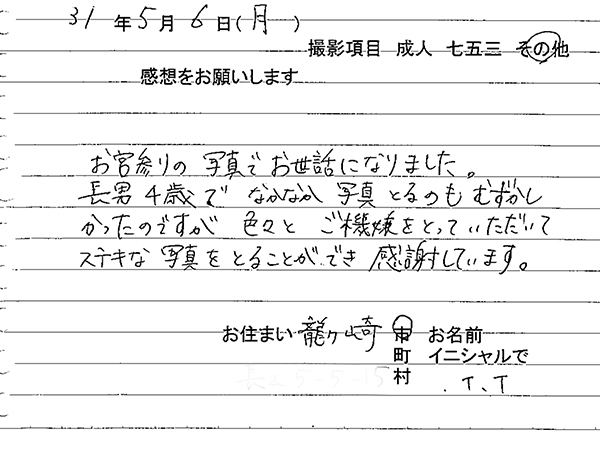 31 年 5 月 6 日(月)
撮影項目 成人 七五三 その他
感想をお願いします
お宮参りの 写真で お世話になりました。
長男 4歳で なかなか 写真 とるのも むずかし
かったのですが 色々と ご機嫌をとっていただいて
ステキな 写真を とることができ 感謝しています。
お住まい 龍ヶ崎 市 お名前
町 イニシャルで
村 .T、T